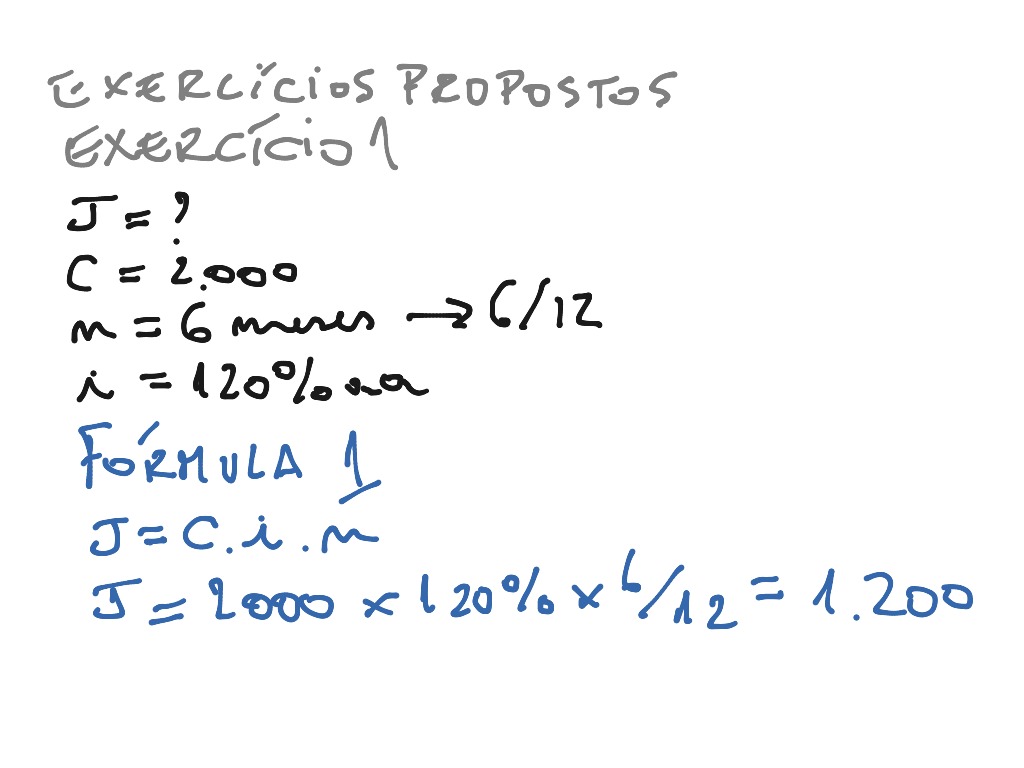 EXERCÍCIOS PROPOSTOS
EXERCÍCIO 1
J = ?
C = 2.000
n = 6 meses → 6/12
i = 120% aa
FÓRMULA 1
J = C.i.n
J = 2000 x 120% x 6/12 = 1.200